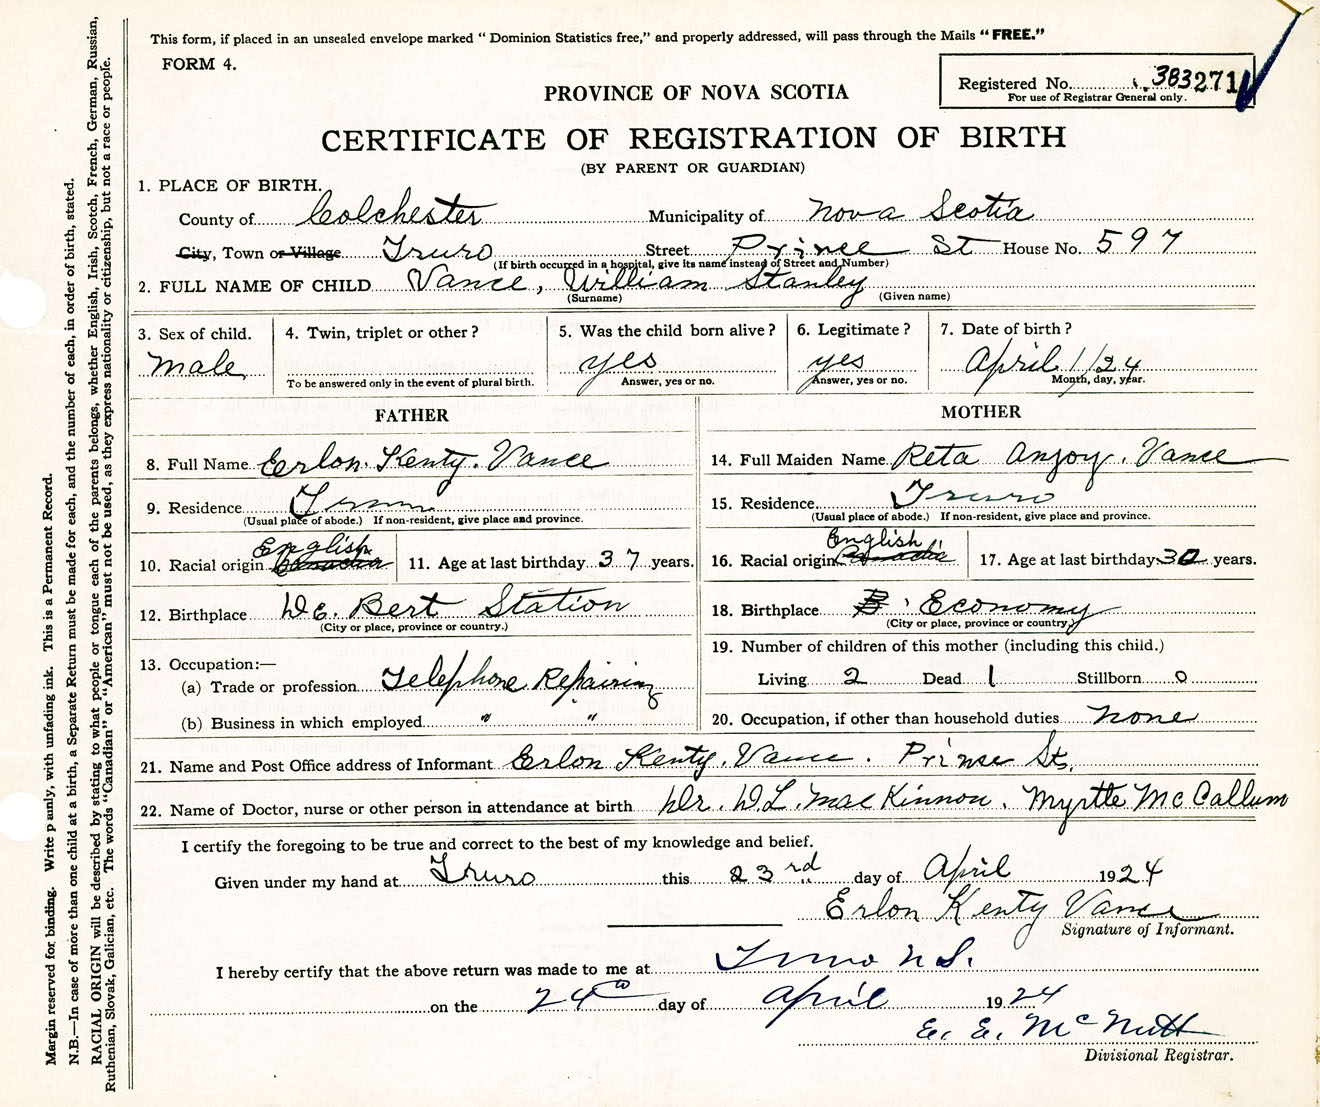 This form, if placed in an unsealed envelope marked “ Dominion Statistics free,” and properly addressed, will pass through the Mails “ FREE.”
FORM 4.
Registered No. 383271
For use of Registrar General only.
PROVINCE OF NOVA SCOTIA
CERTIFICATE OF REGISTRATION OF BIRTH
(BY PARENT OR GUARDIAN)
1. PLACE OF BIRTH.
County of Colchester Municipality of Nova Scotia
City, Town or Village Truro Street Prince St House No. 597
(If birth occurred in a hospital, give its name instead of Street and Number)
2. FULL NAME OF CHILD Vance, William Stanley
(Surname) (Given name)
3. Sex of child. 4. Twin, triplet or other ? 5. Was the child born alive ? 6. Legitimate ? 7. Date of birth ?
male yes yes April 1/24
To be answered only in the event of plural birth. Answer, yes or no. Answer, yes or no. Month, day, year.
FATHER
8. Full Name Erlon Kenty Vance
9. Residence Truro
(Usual place of abode.) If non-resident, give place and province.
English
10. Racial origin Canadian 11. Age at last birthday 37 years.
12. Birthplace De Bert Station
(City or place, province or country.)
13. Occupation:—
(a) Trade or profession Telephone Repairing
(b) Business in which employed " "
MOTHER
14. Full Maiden Name Reta Anjoy Vance
15. Residence Truro
(Usual place of abode.) If non-resident, give place and province.
English
16. Racial origin Canadian 17. Age at last birthday 30 years.
18. Birthplace Economy
(City or place, province or country.)
19. Number of children of this mother (including this child.)
Living 2 Dead 1 Stillborn 0
20. Occupation, if other than household duties none
21. Name and Post Office address of Informant Erlon Kenty Vance. Prince St.
22. Name of Doctor, nurse or other person in attendance at birth Dr. D.L. MacKinnon. Myrtle McCallum
I certify the foregoing to be true and correct to the best of my knowledge and belief.
Given under my hand at Truro this 23rd day of April 1924
Erlon Kenty Vance
Signature of Informant.
I hereby certify that the above return was made to me at Truro N.S.
on the 24th day of April 1924
E. E. McNutt
Divisional Registrar.
Margin reserved for binding. Write plainly, with unfading ink. This is a Permanent Record.
N.B.—In case of more than one child at a birth, a Separate Return must be made for each, and the number of each, in order of birth, stated.
RACIAL ORIGIN will be described by stating to what people or tongue each of the parents belongs, whether English, Irish, Scotch, French, German, Russian,
Ruthenian, Slovak, Galician, etc. The words “Canadian” or “American” must not be used, as they express nationality or citizenship, but not a race or people.